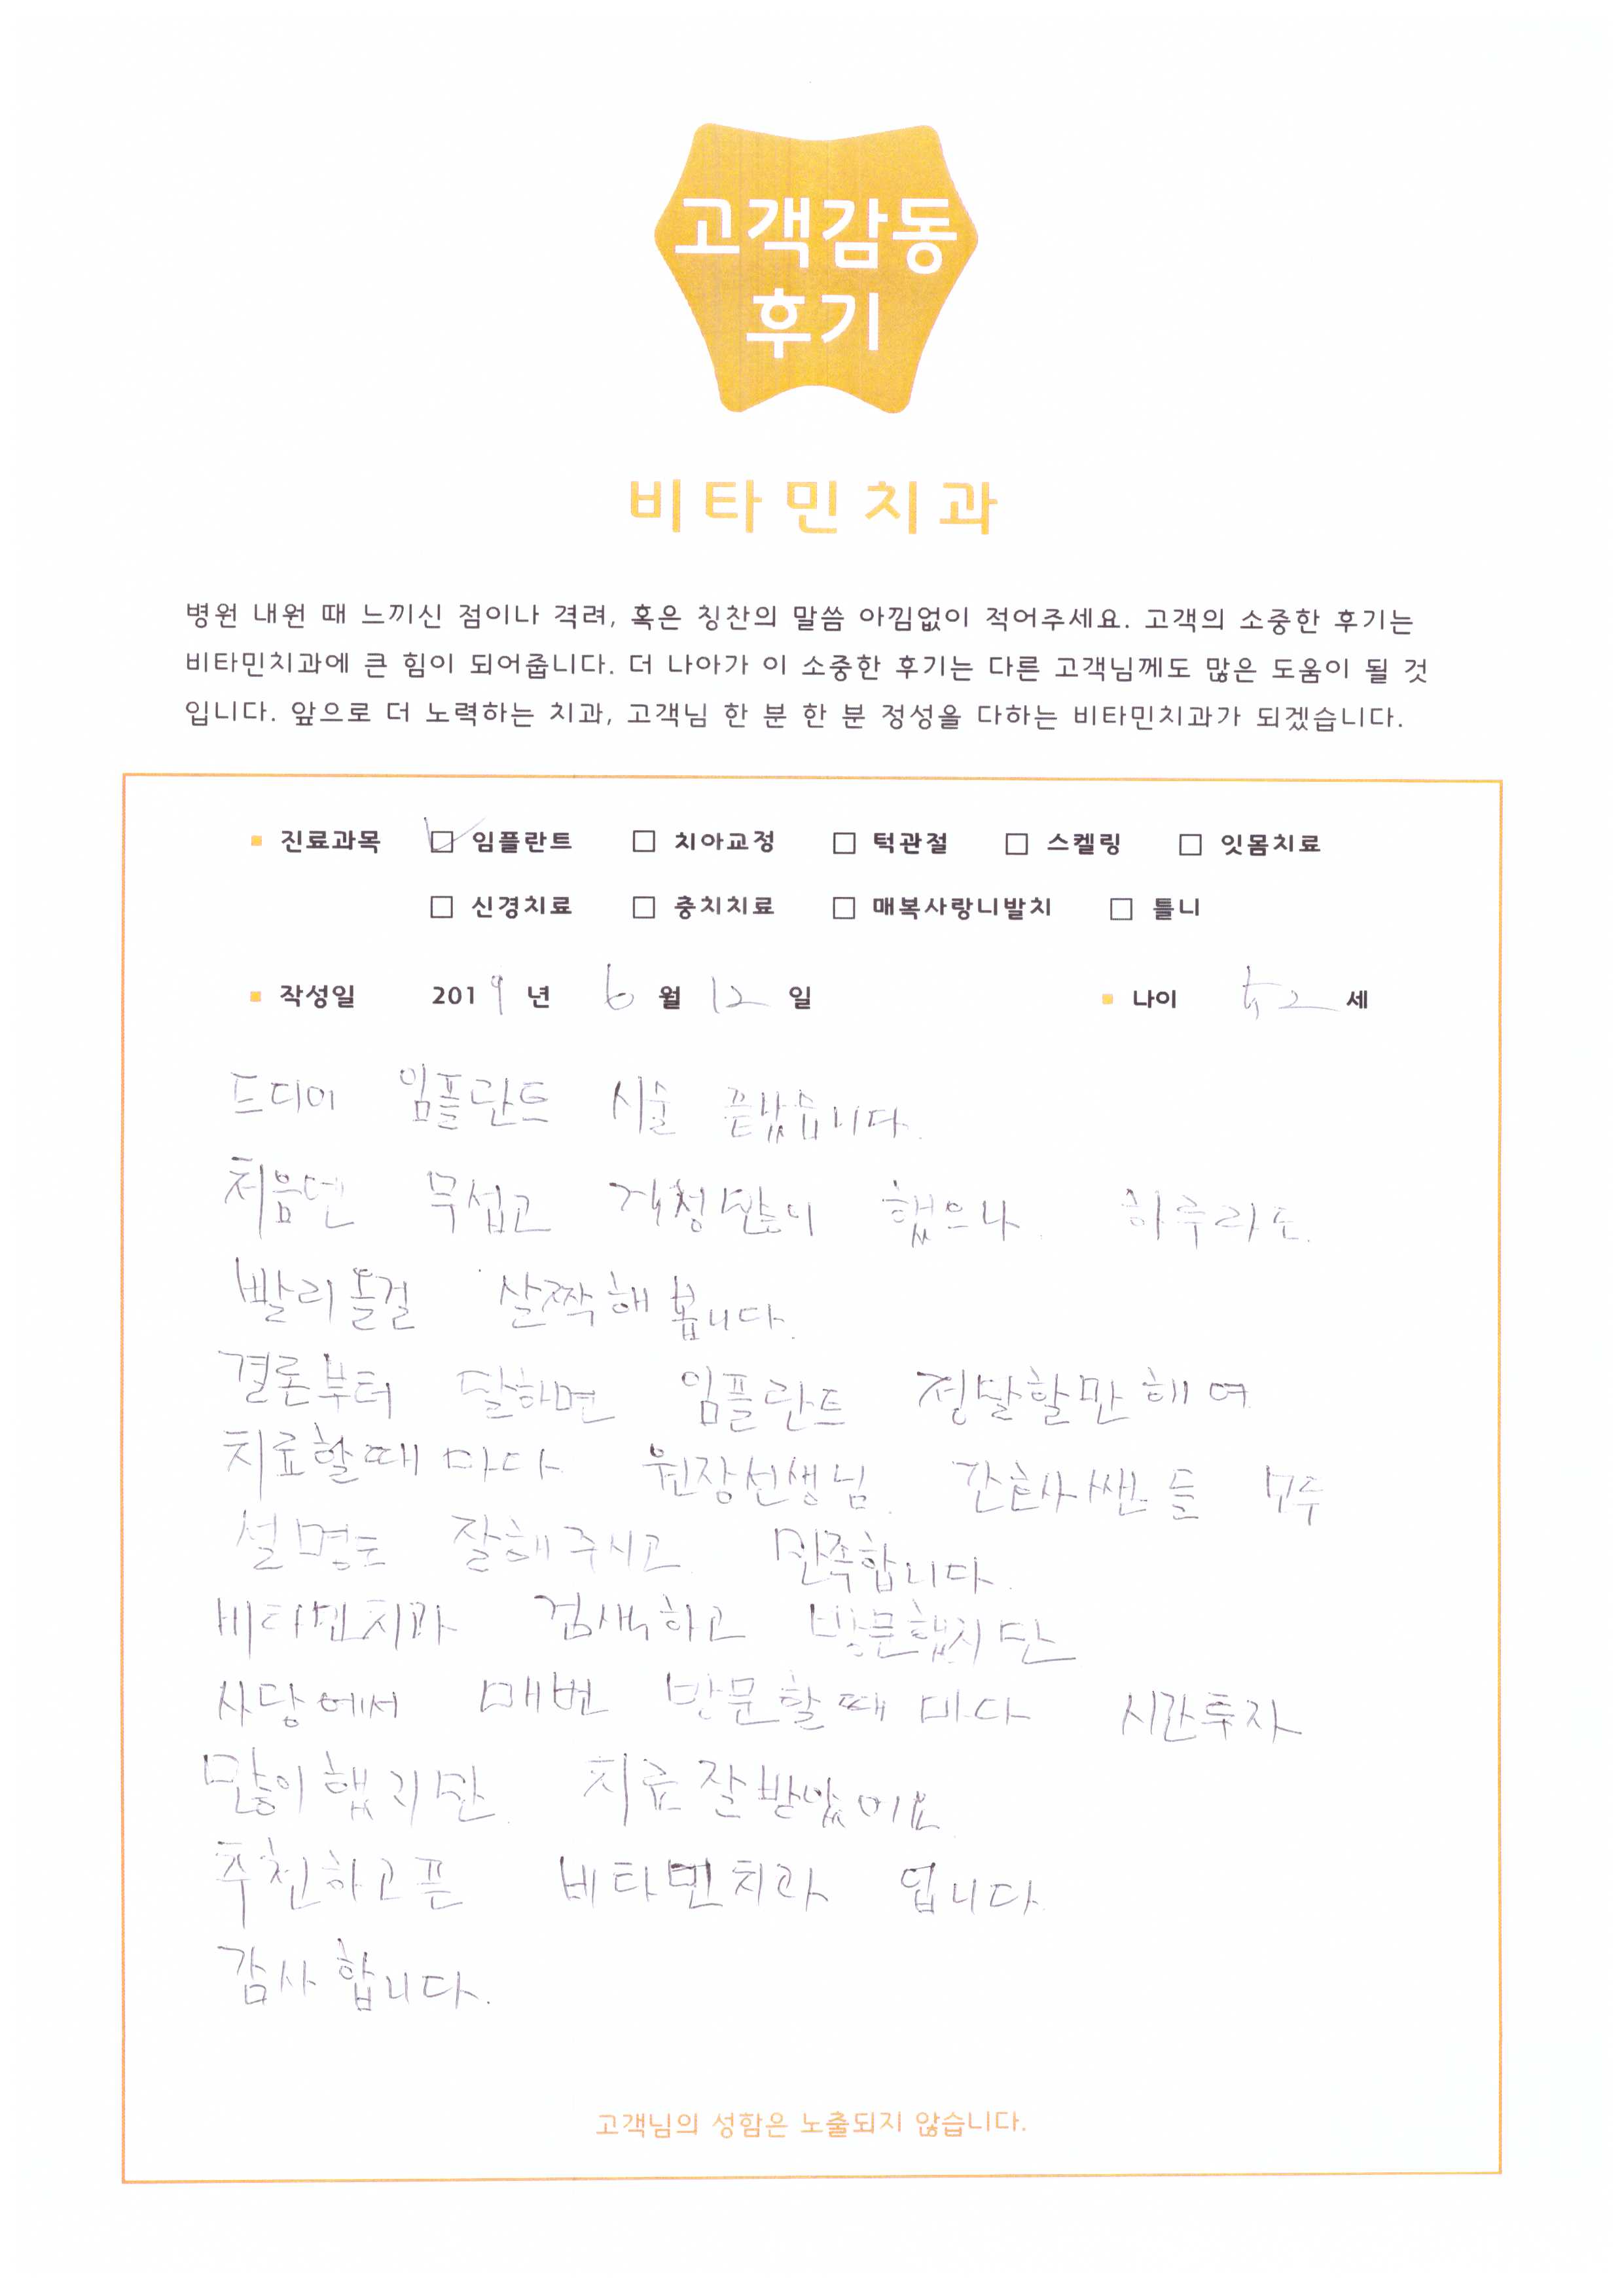 고객감동
후기
비타민치과
병원 내원 때 느끼신 점이나 격려, 혹은 칭찬의 말씀 아낌없이 적어주세요. 고객의 소중한 후기는
비타민치과에 큰 힘이 되어줍니다. 더 나아가 이 소중한 후기는 다른 고객님께도 많은 도움이 될 것
입니다. 앞으로 더 노력하는 치과, 고객님 한 분 한 분 정성을 다하는 비타민치과가 되겠습니다.
진료과목 임플란트 치아교정 턱관절 스켈링 잇몸치료
신경치료 충치치료 매복사랑니발치 틀니
작성일 2019 년 6 월 12 일 나이 52 세
드디어 임플란트 시술 끝났습니다.
처음엔 무섭고 걱정많이 했으나. 하루라도.
빨리올걸 살짝해 봅니다.
결론부터 말하면 임플란트 정말할만해여
치료할때 마다 원장선생님. 간호사쌤들 모두
설명도 잘해주시고. 만족합니다.
비타민치과 검색하고 방문했지만
사당에서 매번 방문할때 마다 시간투자
많이했지만. 치료잘받았어요
추천하고픈 비타민치과 입니다.
감사합니다.
고객님의 성함은 노출되지 않습니다.